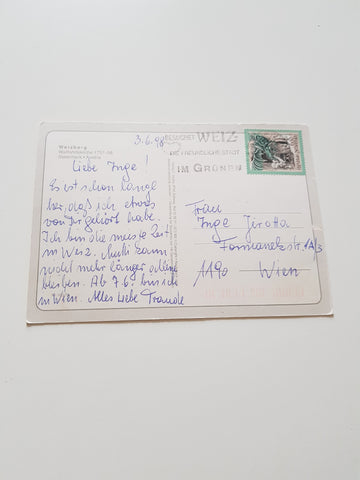 Weizberg
3.6.98
BESUCHET WEIZ
DIE FREUNDLICHE STADT
IM GRÜNEN
Liebe Inge!
Es ist schon lange
her, daß ich etwas
von Dir gehört habe.
Ich bin die meiste Zeit
in Weiz. Mutti kann
nicht mehr länger alleine
bleiben. Ab 7.6. bin ich
in Wien. Alles Liebe Traude
Frau
Inge
1190 Wien